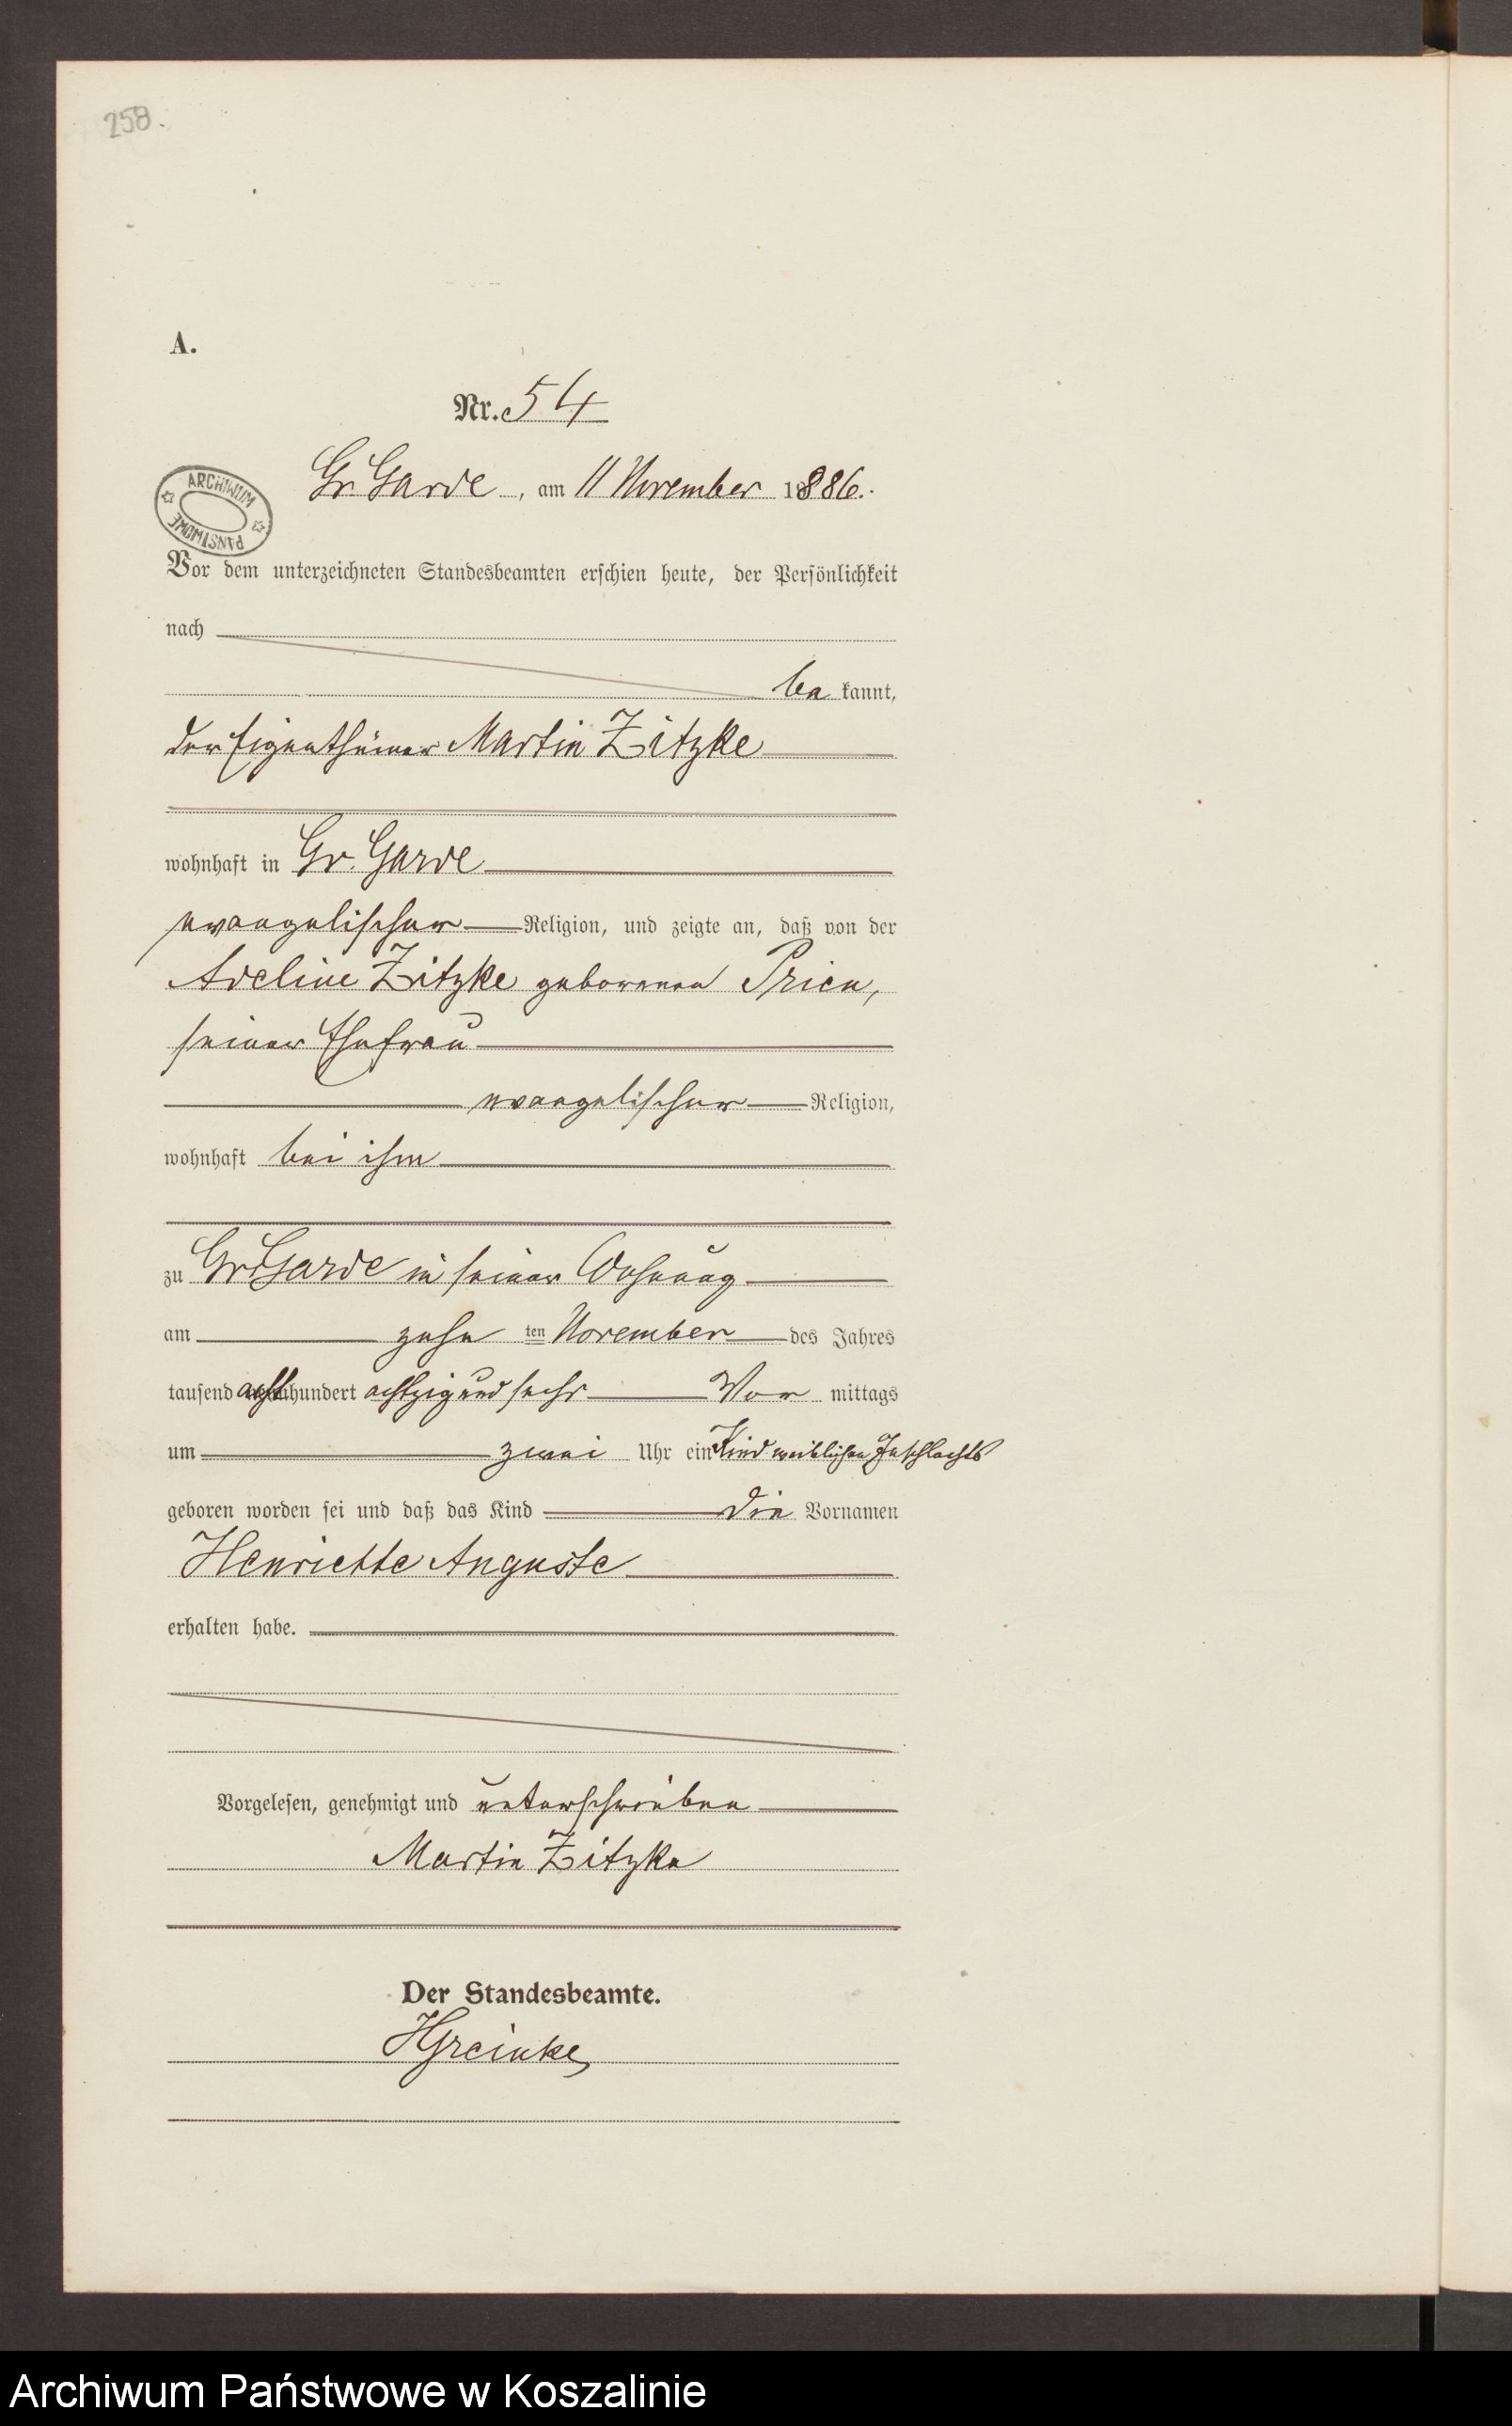 258.
A.
Nr. 54
ARCHIWUM PAŃSTWOWE
Gr. Garde, am 11 November 1886.
Vor dem unterzeichneten Standesbeamten erschien heute, der Persönlichkeit
nach
be kannt,
der Eigenthümer Martin Zitzke
wohnhaft in Gr. Garde
evangelischer Religion, und zeigte an, daß von der
Adeline Zitzke geborenen Prien,
seiner Ehefrau
evangelischer Religion,
wohnhaft bei ihm
zu Gr. Garde in seiner Wohnung
am zehn ten November des Jahres
tausend acht hundert achtzig und sechs Vor mittags
um zwei Uhr ein Kind weiblichen Geschlechts
geboren worden sei und daß das Kind die Vornamen
Henriette Auguste
erhalten habe.
Vorgelesen, genehmigt und unterschrieben
Martin Zitzke
Der Standesbeamte.
HGreinke
Archiwum Państwowe w Koszalinie